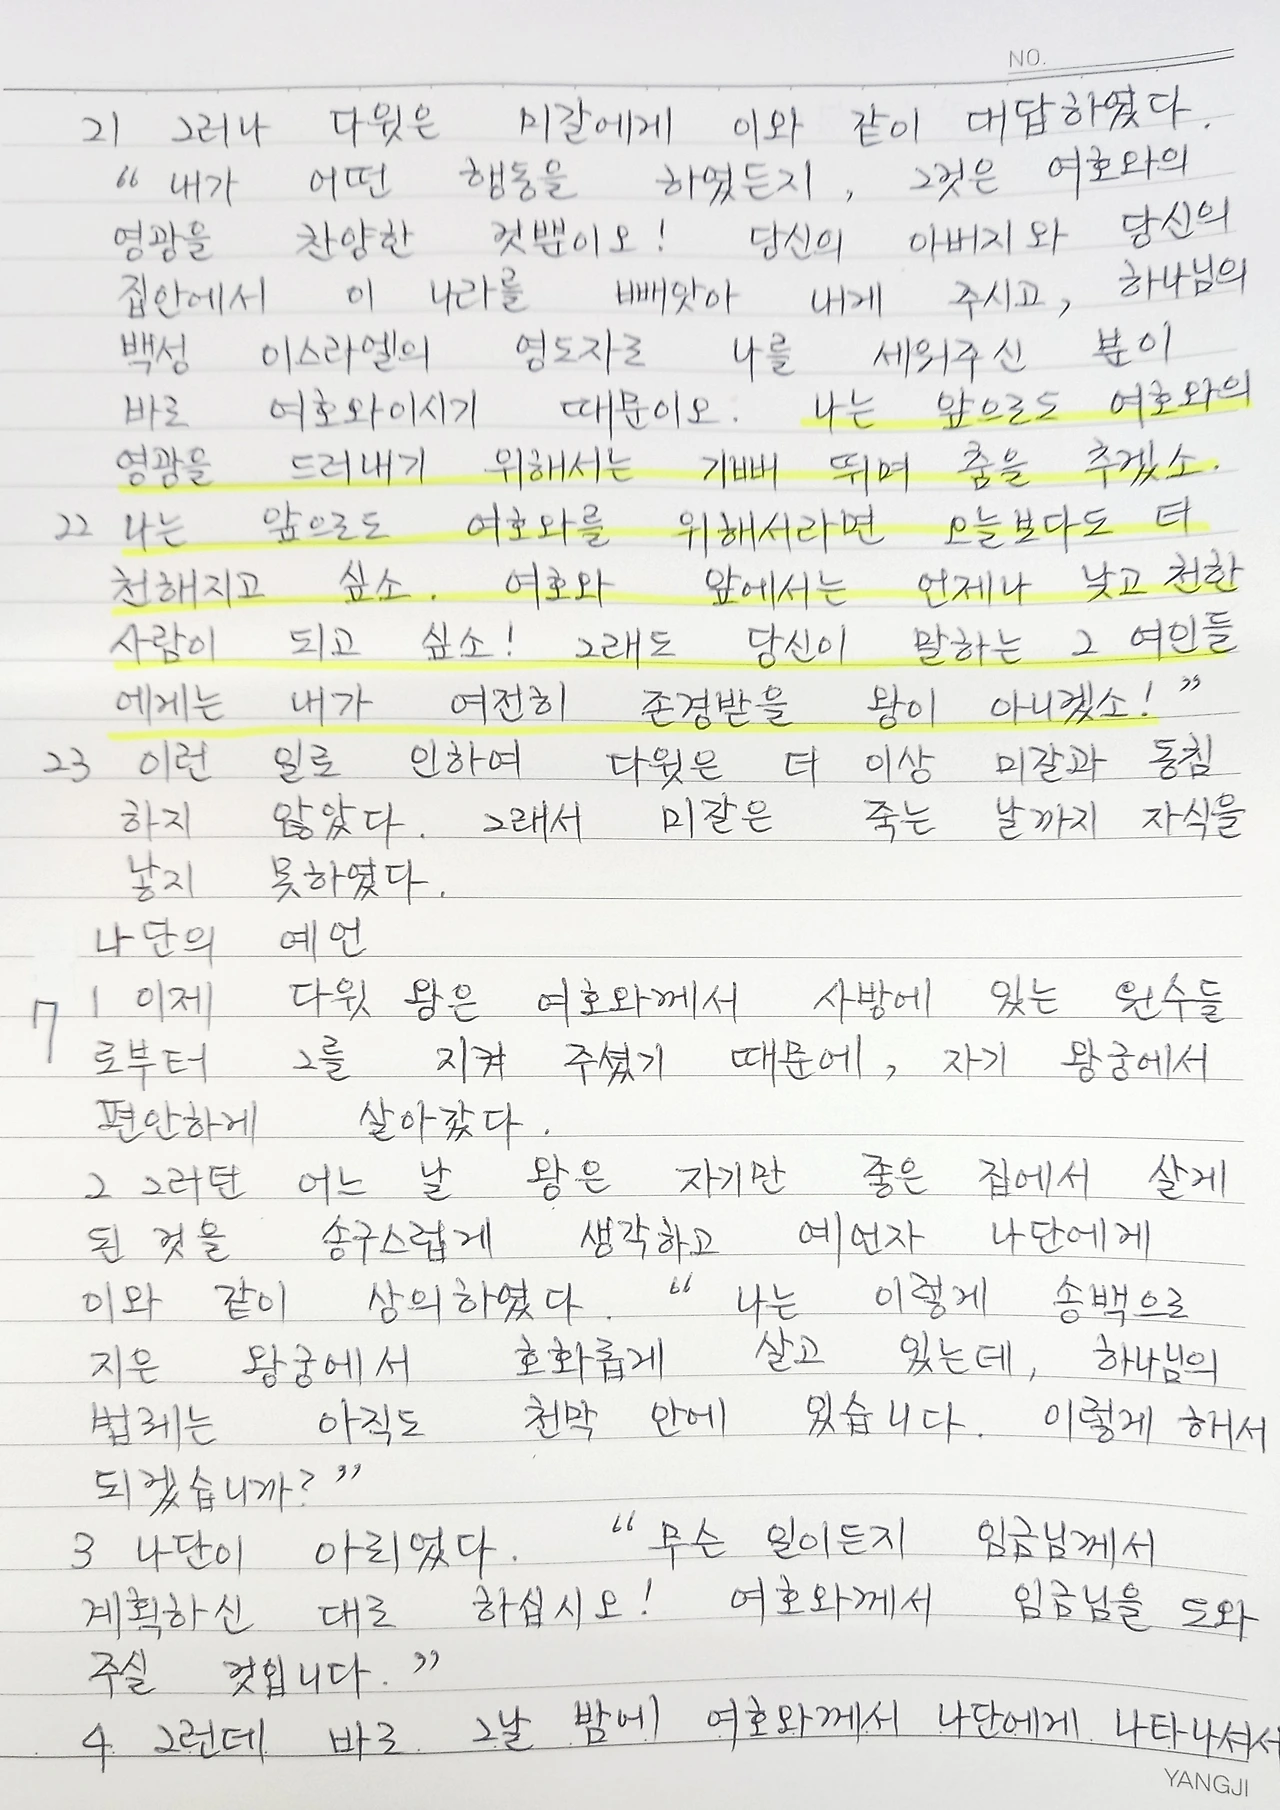 NO.
21 그러나 다윗은 미갈에게 이와 같이 대답하였다.
“내가 어떤 행동을 하였든지, 그것은 여호와의
영광을 찬양한 것뿐이오! 당신의 아버지와 당신의
집안에서 이 나라를 빼앗아 내게 주시고, 하나님의
백성 이스라엘의 영도자로 나를 세워주신 분이
바로 여호와이시기 때문이오. 나는 앞으로도 여호와의
영광을 드러내기 위해서는 기뻐 뛰며 춤을 추겠소.
22 나는 앞으로도 여호와를 위해서라면 오늘보다도 더
천해지고 싶소. 여호와 앞에서는 언제나 낮고 천한
사람이 되고 싶소! 그래도 당신이 말하는 그 여인들
에게는 내가 여전히 존경받을 왕이 아니겠소!”
23 이런 일로 인하여 다윗은 더 이상 미갈과 동침
하지 않았다. 그래서 미갈은 죽는 날까지 자식을
낳지 못하였다.
나단의 예언
7 1 이제 다윗 왕은 여호와께서 사방에 있는 원수들
로부터 그를 지켜 주셨기 때문에, 자기 왕궁에서
편안하게 살아갔다.
2 그러던 어느 날 왕은 자기만 좋은 집에서 살게
된 것을 송구스럽게 생각하고 예언자 나단에게
이와 같이 상의하였다. “나는 이렇게 송백으로
지은 왕궁에서 호화롭게 살고 있는데, 하나님의
법궤는 아직도 천막 안에 있습니다. 이렇게 해서
되겠습니까?”
3 나단이 아뢰었다. “무슨 일이든지 임금님께서
계획하신 대로 하십시오! 여호와께서 임금님을 도와
주실 것입니다.”
4 그런데 바로 그날 밤에 여호와께서 나단에게 나타나셔서
YANGJI